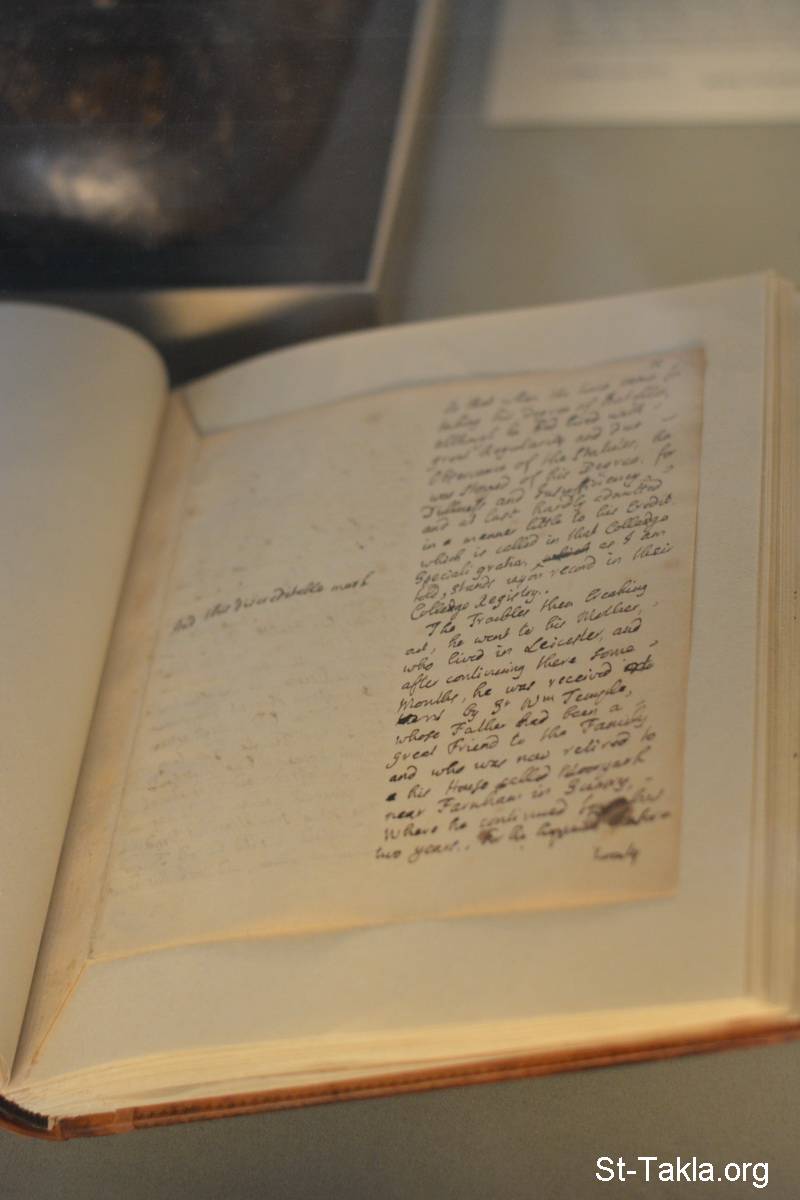 So that when the time came for
taking his Degree of Batchlor,
although he had lived with
great Regularity and due
Observance of the Statutes, he
was stopped of his Degree, for
Dullness and Insufficiency,
and at last hardly admitted
in a manner little to his Credit,
which is called in that Colledge
Speciali gratia, which as I am
told, stands upon record in their
Colledge Registry.
The Troubles then breaking
out, he went to his Mother,
who lived in Leicester, and
after continuing there some
Months, he was received
by Sr Wm Temple,
whose Father had been a
great Friend to the Family
and who was now retired to
his House called Moorpark
near Farnham in Surry,
Where he continued for
two years. For he happened
twenty
And this discreditable mark
St-Takla.org